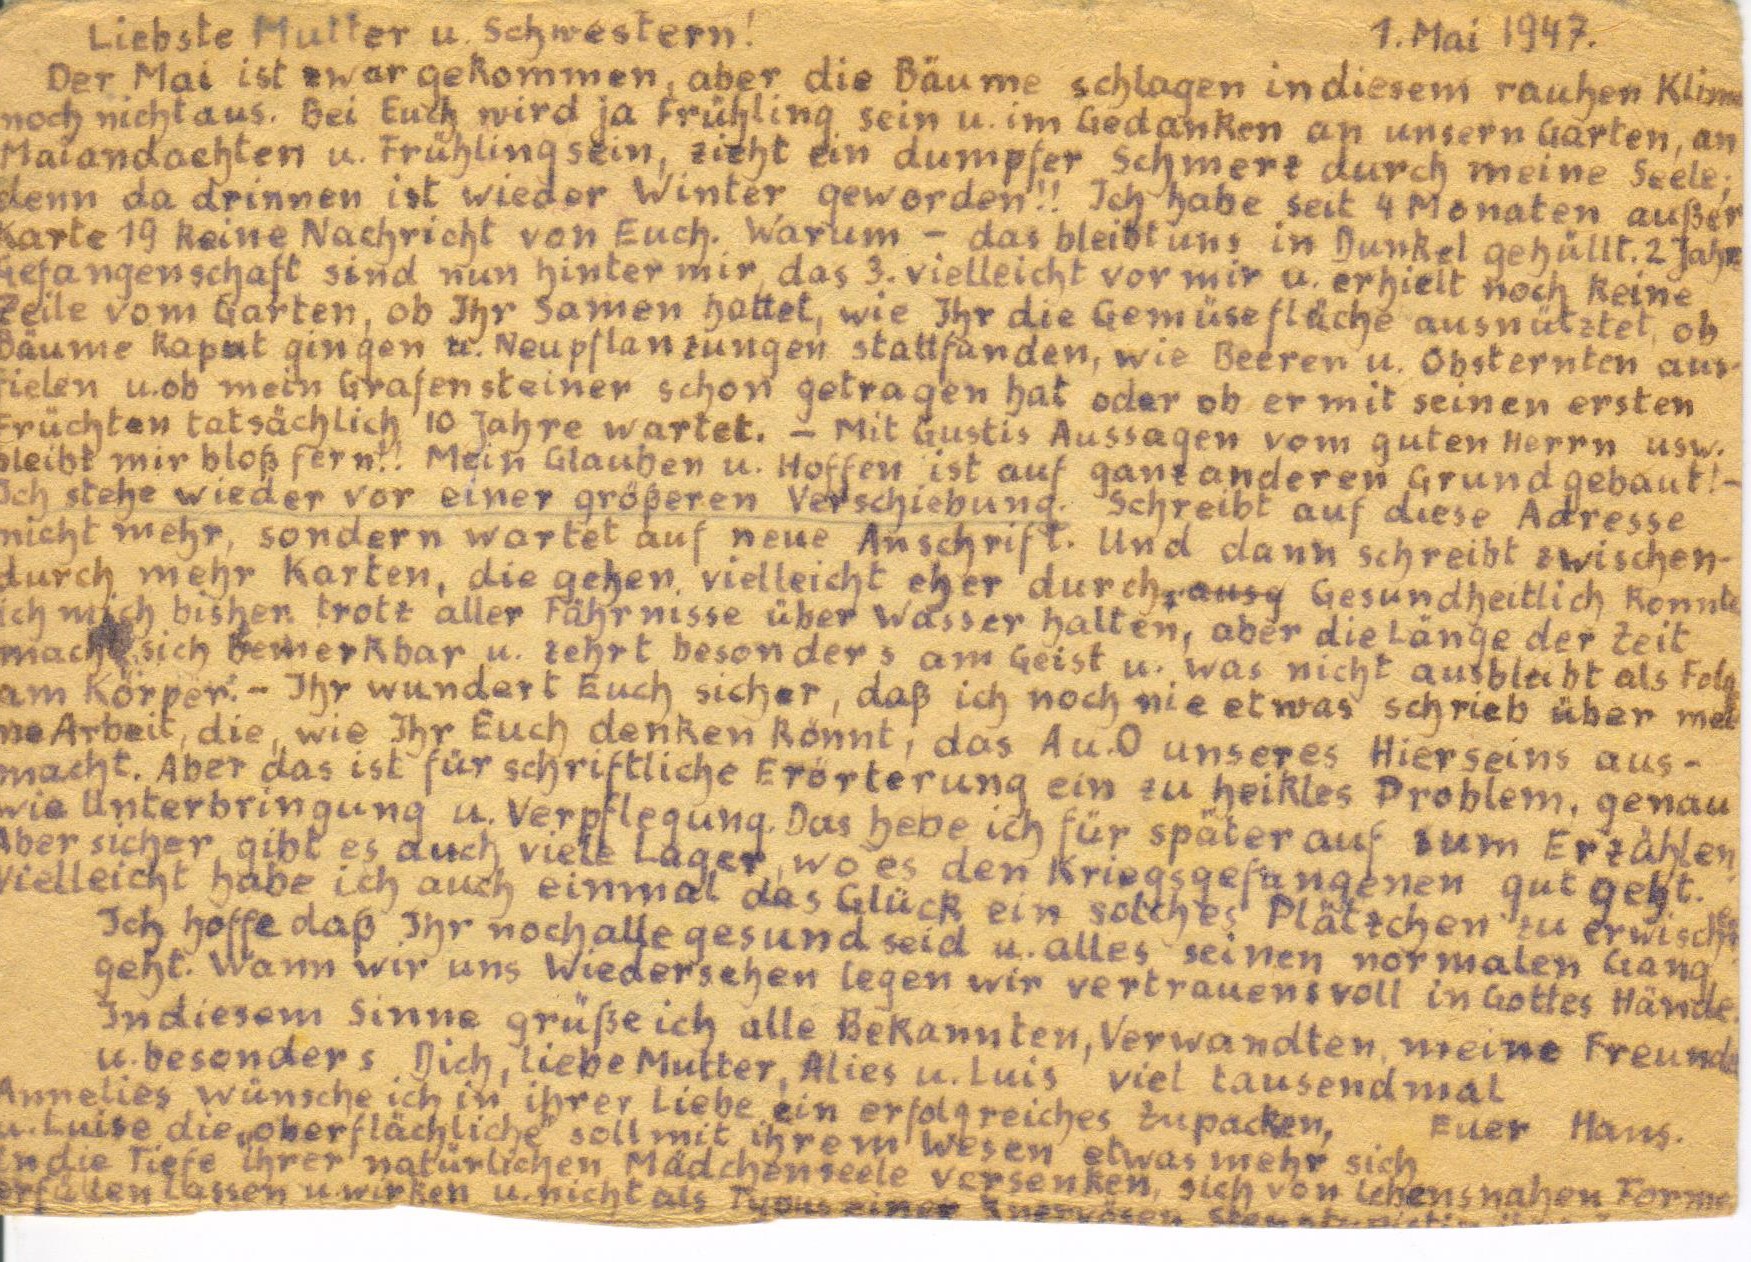 Liebste Mutter u. Schwestern! 1. Mai 1947.
Der Mai ist zwar gekommen, aber die Bäume schlagen in diesem rauhen Klima
noch nicht aus. Bei Euch wird ja Frühling sein u. im Gedanken an unsern Garten, an
Maiandachten u. Frühlingsein, zieht ein dumpfer Schmerz durch meine Seele;
denn da drinnen ist wieder Winter geworden!! Ich habe seit 4 Monaten außer
Karte 19 keine Nachricht von Euch. Warum – das bleibt uns in Dunkel gehüllt. 2 Jahre
Gefangenschaft sind nun hinter mir, das 3. vielleicht vor mir u. erhielt noch keine
Zeile vom Garten, ob Ihr Samen hattet, wie Ihr die Gemüsefläche ausnütztet, ob
Bäume kaput gingen u. Neupflanzungen stattfanden, wie Beeren u. Obsternten aus-
fielen u. ob mein Grafensteiner schon getragen hat oder ob er mit seinen ersten
Früchten tatsächlich 10 Jahre wartet. – Mit Gustis Aussagen vom guten Herrn usw.
bleibt mir bloß fern!! Mein Glauben u. Hoffen ist auf ganz anderen Grund gebaut! –
Ich stehe wieder vor einer größeren Verschiebung. Schreibt auf diese Adresse
nicht mehr, sondern wartet auf neue Anschrift. Und dann schreibt zwischen-
durch mehr Karten, die gehen vielleicht eher durch. Gesundheitlich konnte
ich mich bisher trotz aller Fährnisse über Wasser halten, aber die Länge der Zeit
macht sich bemerkbar u. zehrt besonders am Geist u. was nicht ausbleibt als Folg
am Körper. – Ihr wundert Euch sicher, daß ich noch nie etwas schrieb über mei
ne Arbeit, die, wie Ihr Euch denken könnt, das A u. O unseres Hierseins aus-
macht. Aber das ist für schriftliche Erörterung ein zu heikles Problem, genau
wie Unterbringung u. Verpflegung. Das hebe ich für später auf zum Erzählen,
Aber sicher gibt es auch viele Lager, wo es den Kriegsgefangenen gut geht.
Vielleicht habe ich auch einmal das Glück ein solches Plätzchen zu erwischen
Ich hoffe daß Ihr noch alle gesund seid u. alles seinen normalen Gang
geht. Wann wir uns Wiedersehen legen wir vertrauensvoll in Gottes Hände.
In diesem Sinne grüße ich alle Bekannten, Verwandten, meine Freunde
u. besonders Dich, liebe Mutter, Alies u. Luis viel tausendmal
Annelies wünsche ich in ihrer Liebe ein erfolgreiches Zupacken, Euer Hans.
u. Luise die „oberflächliche" soll mit ihrem Wesen etwas mehr sich
in die Tiefe ihrer natürlichen Mädchenseele versenken, sich von lebensnahen Forme
erfüllen lassen u. wirken u. nicht als Typus einer nervösen